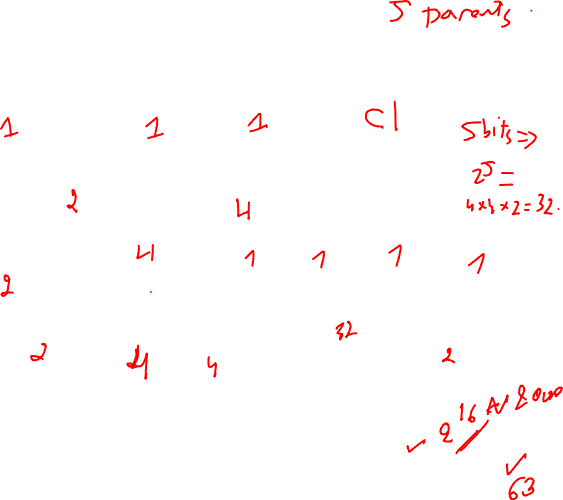 5 parents.
1 1 1 cl
5 bits =>
2^5 =
4 x 4 x 2 = 32.
2 4
4 1 1 1 1
2
32
2 4 4 2
2^16
63